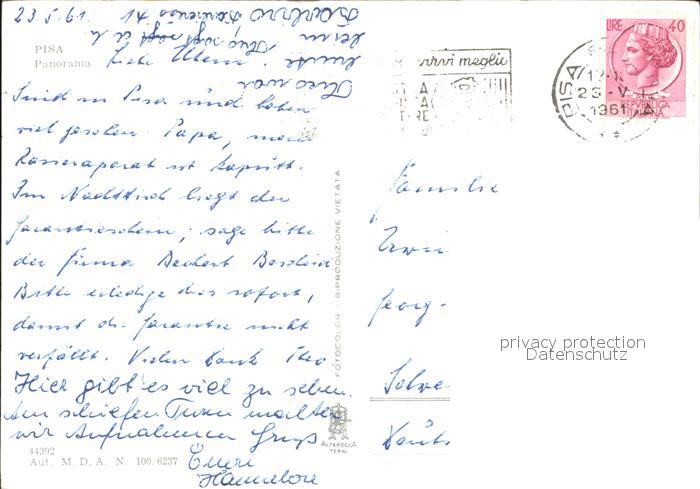 23.5.61.
PISA
Panorama
Liebe Eltern!
Sind in Pisa und haben
viel gesehen. Papa, mein
Rasieraparat ist kaputt.
Im Nachttisch liegt der
Garantieschein; sage bitte
der Firma Bescheid
Bitte erledige dies sofort,
damit die Garantie nicht
verfällt. Vielen Dank Theo
Hier gibt es viel zu sehen.
Am schiefen Turm machten
wir Aufnahmen Gruß
Eure
Hannelore
44392
Aut. M. D. A. N. 100/6237
FOTOCOLOR - RIPRODUZIONE VIETATA
ALTEROCCA
TERNI
LIRE 40
REPVBBLICA
ITALIANA
PISA
23-V
1961
Familie
Erwin
Georg-
privacy protection
Datenschutz